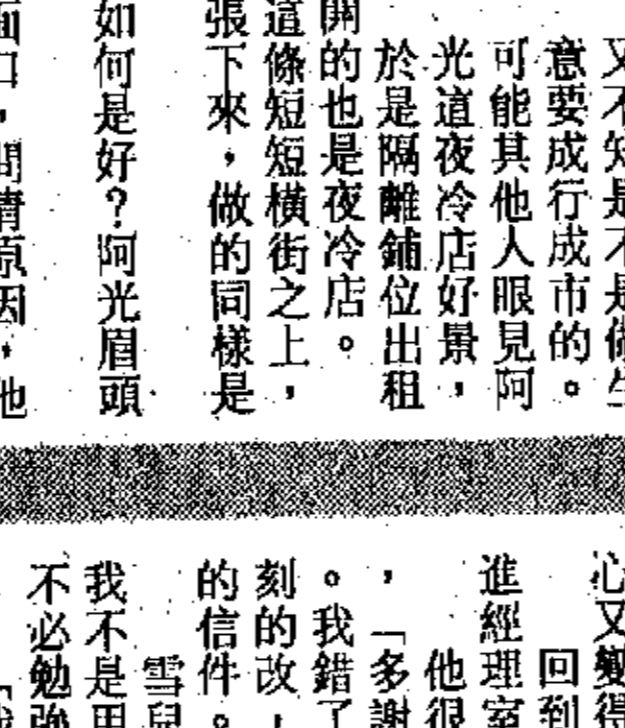 又不知是不是做生
意要成行成市的。
可能其他人眼見阿
光道夜冷店好景，
於是隔離鋪位出租
開的也是夜冷店。
這條短短橫街之上，
張下來，做的同樣是
如何是好？阿光眉頭
面口，問清原因，他
心又變得
回到
進經理室
他很
，「多謝
。我錯了
刻的改，
的信件。
雪兒
我不是用
不必勉強
「我